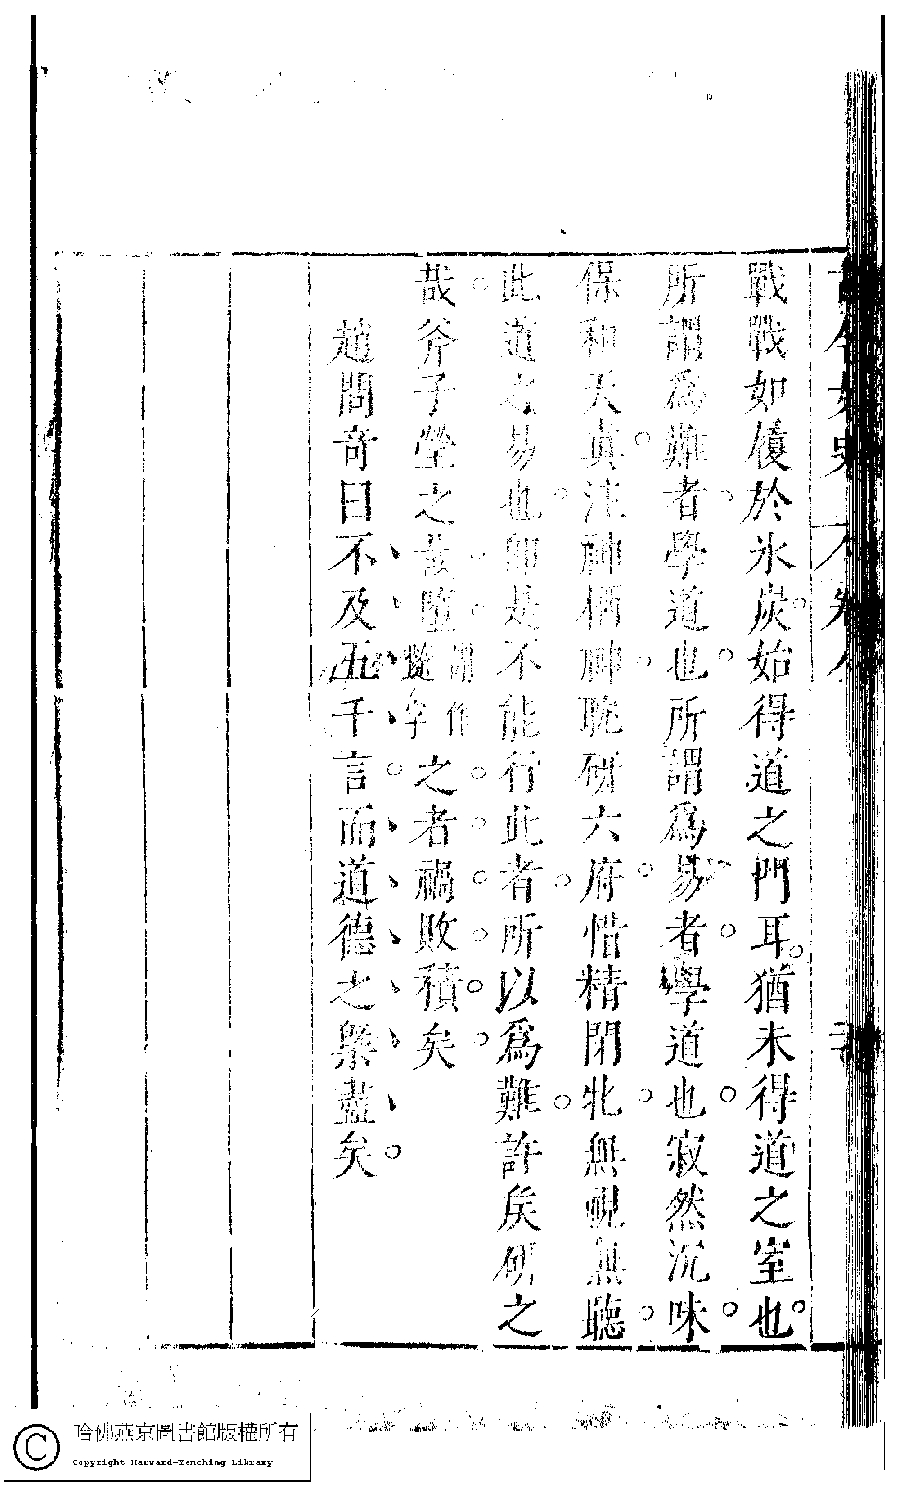 戰戰如履於氷炭始得道之門耳猶未得道之室也
所謂爲難者學道也所謂爲易者學道也寂然沉味
保和天真注神栖神眺研六府惜精閉牝無視無聽
此道之易也即是不能行此者所以爲難許矣研之
哉斧子瑩之哉墮謂作墮字之者禍敗積矣
趙問奇曰不及五千言而道德之槩盡矣
古今女史
卷八
哈佛燕京圖書館版權所有
Copyright Harvard-Yenching Library